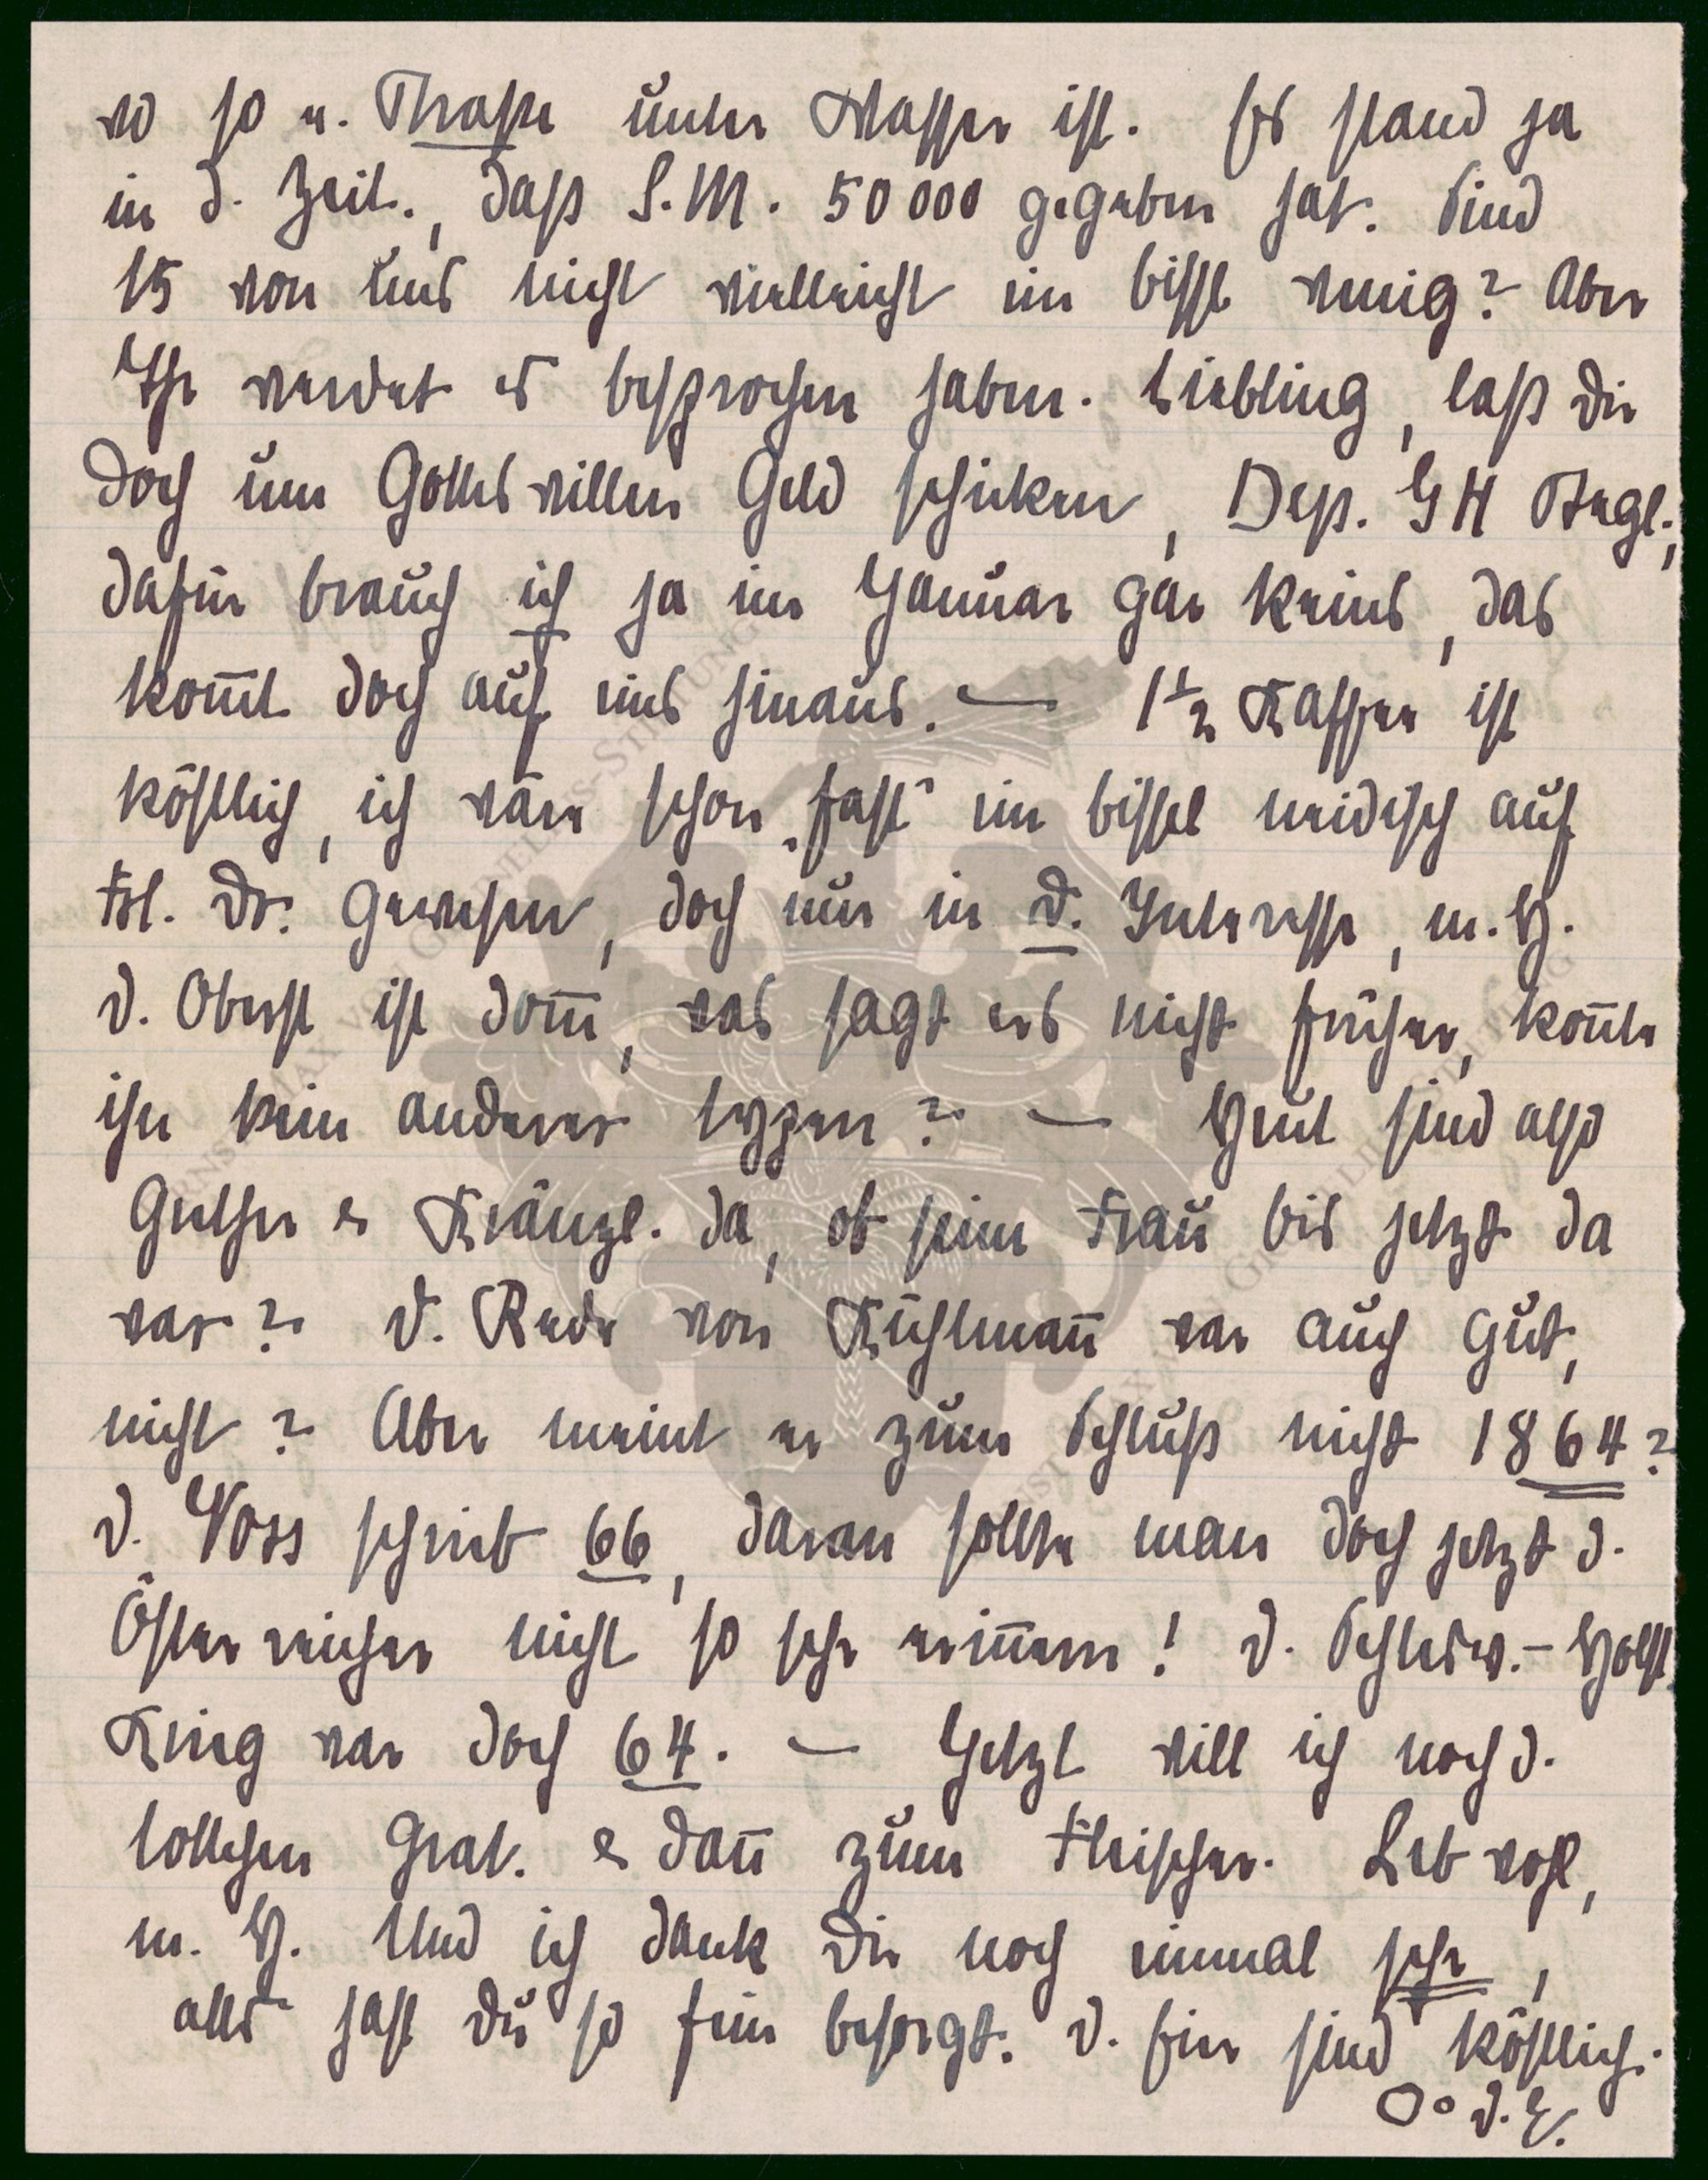 wo so n. Straße unter Wasser ist. Es stand ja
in d. Zeit., daß S.M. 50 000 gegeben hat. Sind
15 von uns nicht vielleicht ein bissl wenig? Aber
Ihr werdet es besprochen haben. Liebling, laß Dir
doch um Gottes willen Geld schicken, Dep. G H
dafür brauch ich ja im Januar gar keins, das
kom̄t doch auf eins hinaus. — 1½ Kaffee ist
köstlich, ich wäre schon „fast" ein bissel neidisch auf
Frl. Dr. gewesen, doch nur in D. Interesse, m. H.
D. Oberst ist dom̄, was sagt ers nicht früher, kon̄te
ihn kein anderer tippen? — Heut sind also
Günther & Kränzl. da, ob seine Frau bis jetzt da
war? D. Rede von Kühlman̄ war auch gut,
nicht? Aber meint er zum Schluß nicht 1864?
D. Voss schrieb 66, daran sollte man doch jetzt d.
Österreicher nicht so sehr erin̄ern! D. Schlesw.-Holst.
Krieg war doch 64. — Jetzt will ich noch d.
Lottchen grat. & dan̄ zum Fleischer. Leb wohl,
m. H. Und ich dank Dir noch einmal sehr,
alles hast Du so fein besorgt. D. Eier sind köstlich.
O° D. E.